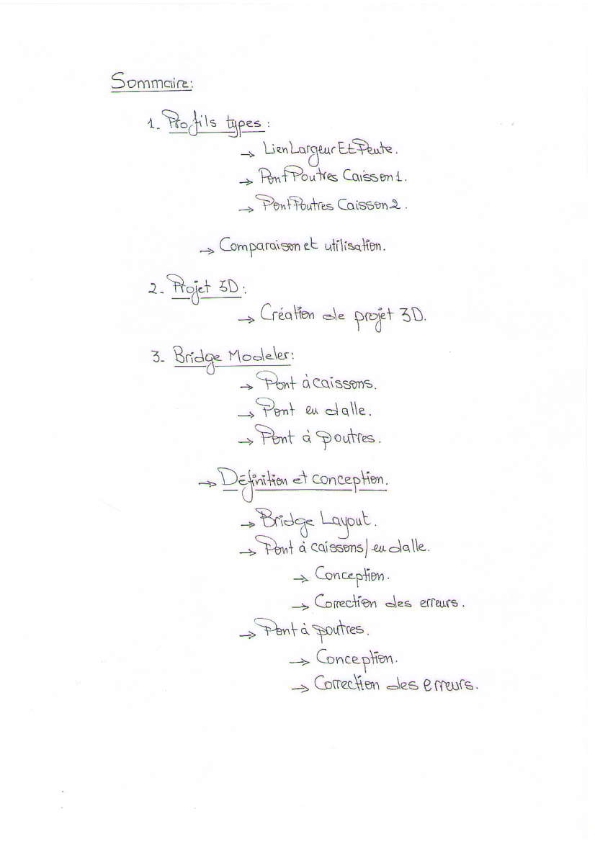 Sommaire:
1. Profils types :
→ LienLargeurEtPente.
→ PontPoutres Caisson1.
→ PontPoutres Caisson2.
→ Comparaison et utilisation.
2. Projet 3D :
→ Création de projet 3D.
3. Bridge Modeler:
→ Pont à caissons.
→ Pont en dalle.
→ Pont à poutres.
→ Définition et conception.
→ Bridge Layout.
→ Pont à caissons/en dalle.
→ Conception.
→ Correction des erreurs.
→ Pont à poutres.
→ Conception.
→ Correction des erreurs.